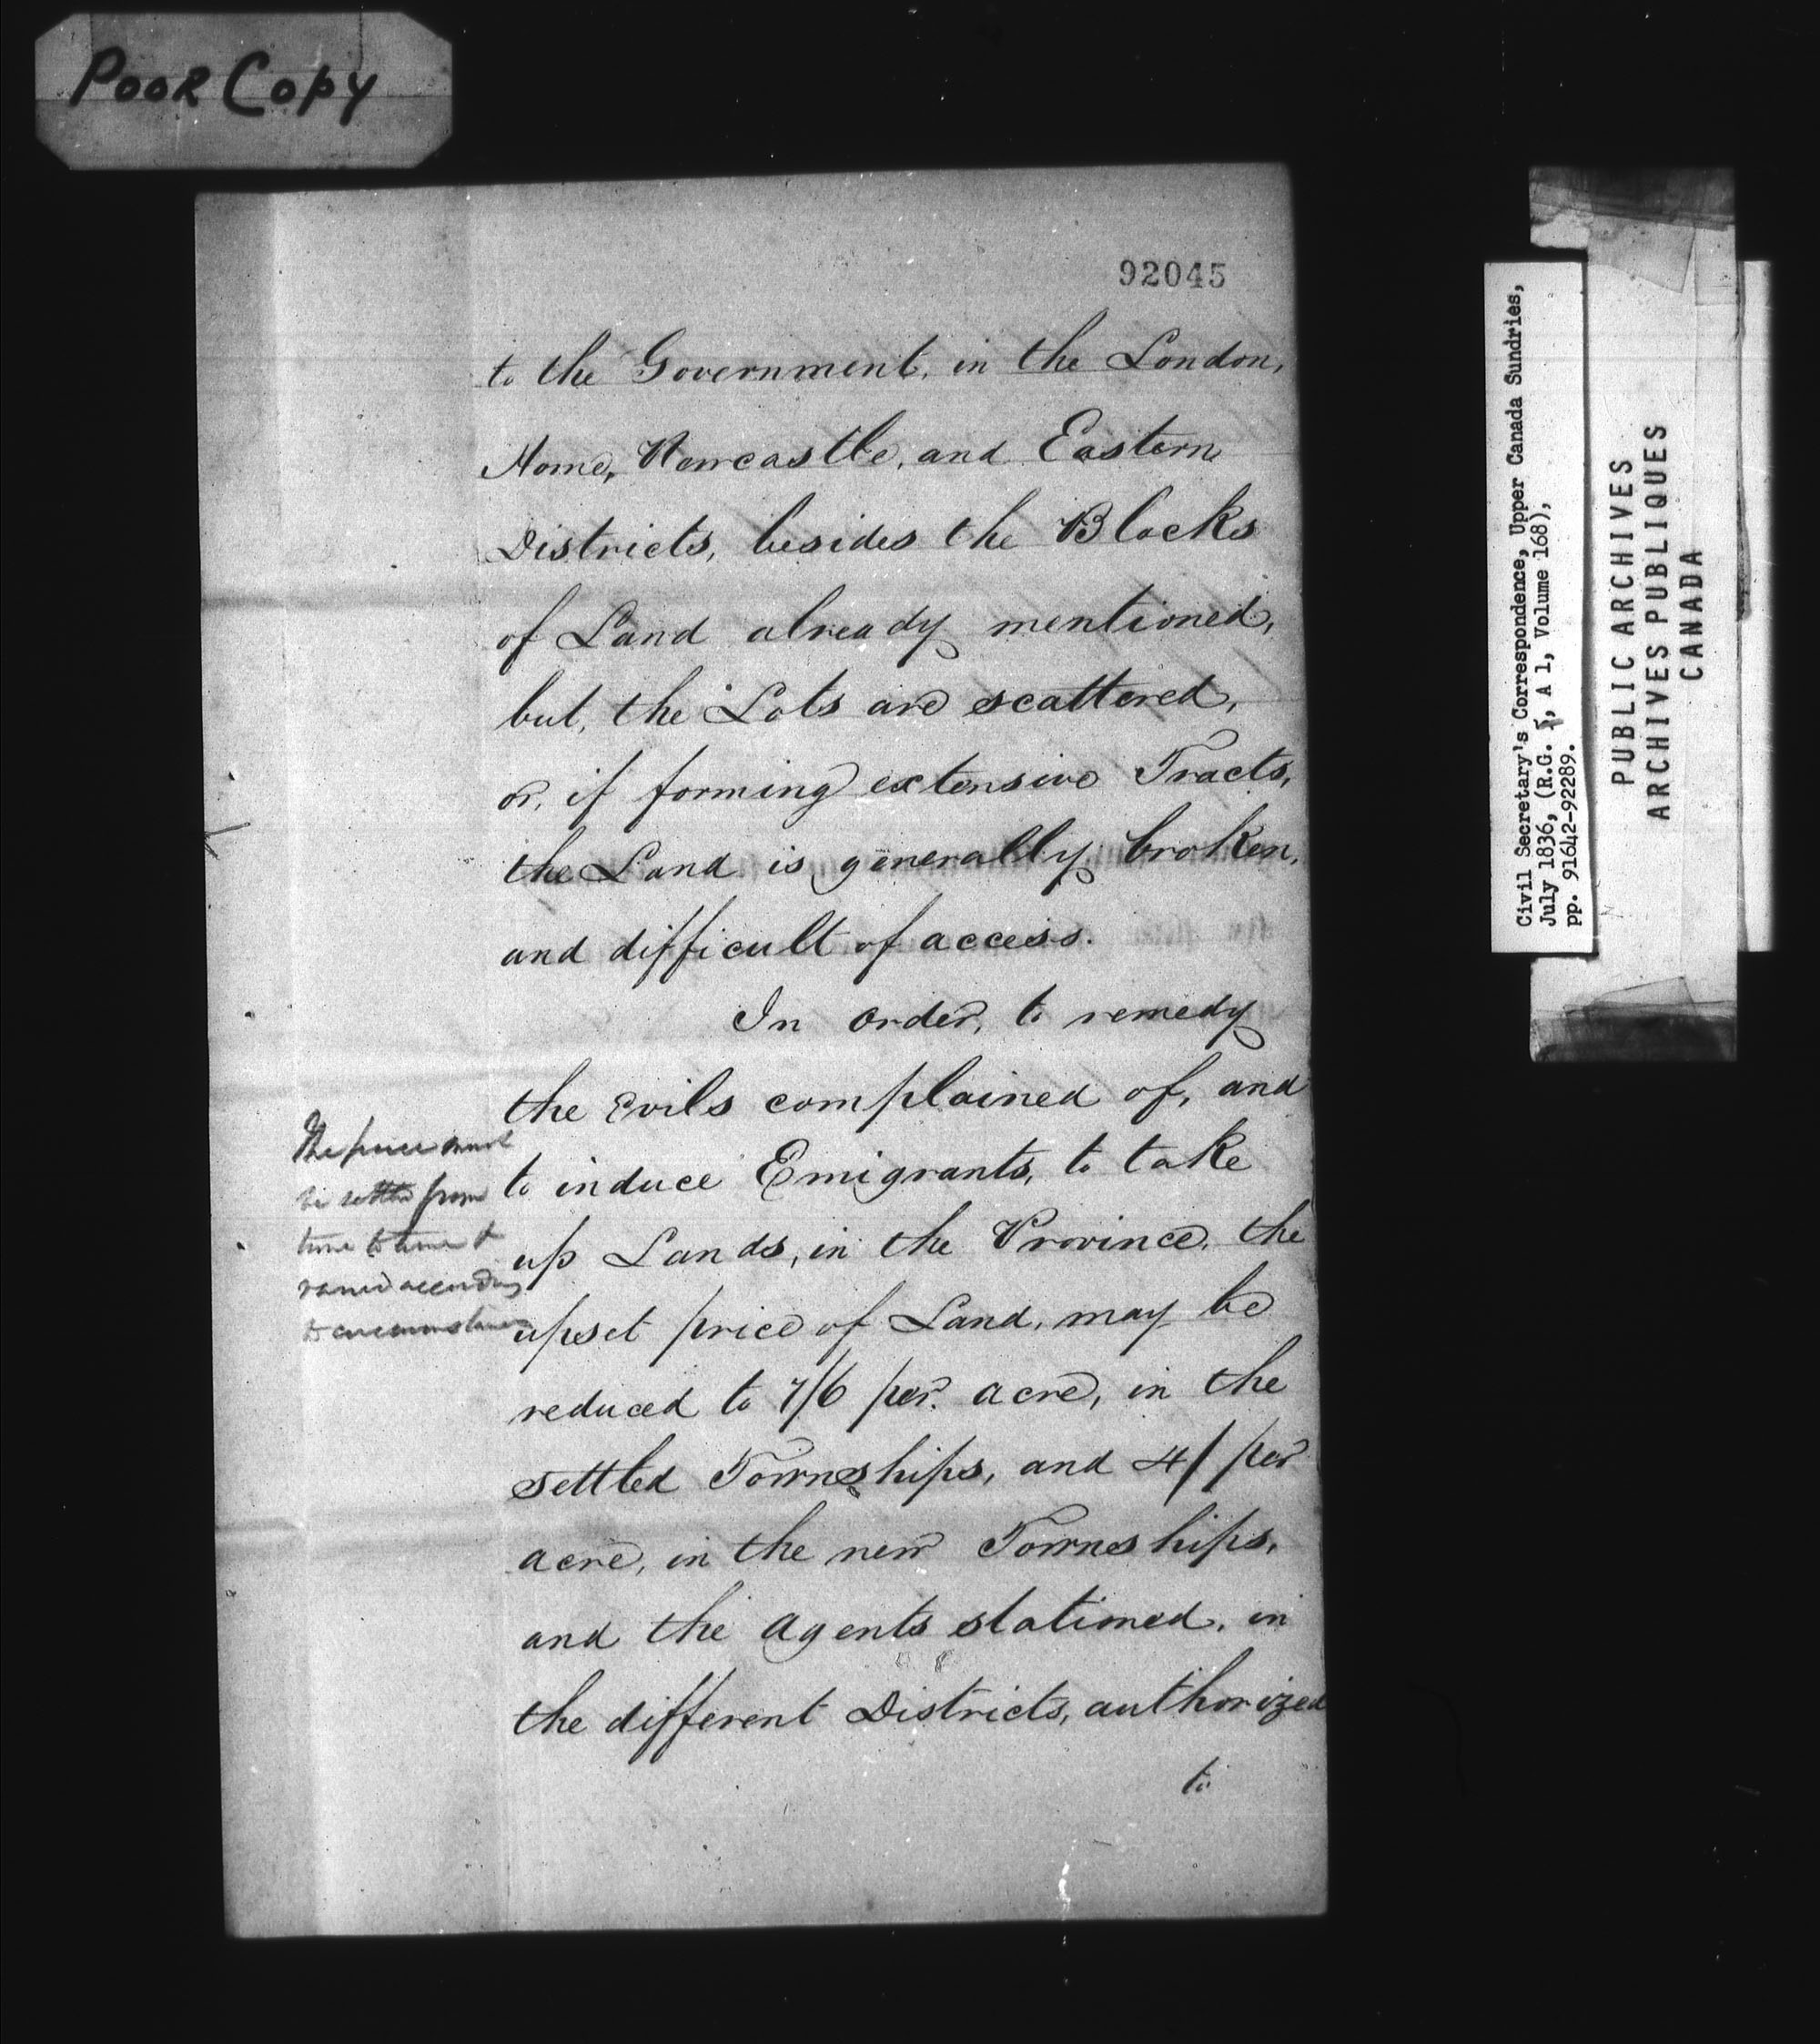 POOR COPY
92045
to the Government, in the London,
Home, Newcastle, and Eastern
Districts, besides the Blocks
of Land already mentioned,
but, the Lots are scattered,
or, if forming extensive Tracts,
the Land is generally broken,
and difficult of access.
In order, to remedy
the Evils complained of, and
to induce Emigrants, to take
up Lands, in the Province, the
upset price of Land, may be
reduced to 7/6 per. acre, in the
settled Townships, and 4/ per
acre, in the new Townships,
and the Agents stationed, in
the different Districts, authorized
to
The price must
be settled from
time to time &
varied according
to circumstances
Civil Secretary's Correspondence, Upper Canada Sundries,
July 1836, (R.G. 5, A 1, Volume 168),
pp. 91642-92289.
PUBLIC ARCHIVES
ARCHIVES PUBLIQUES
CANADA